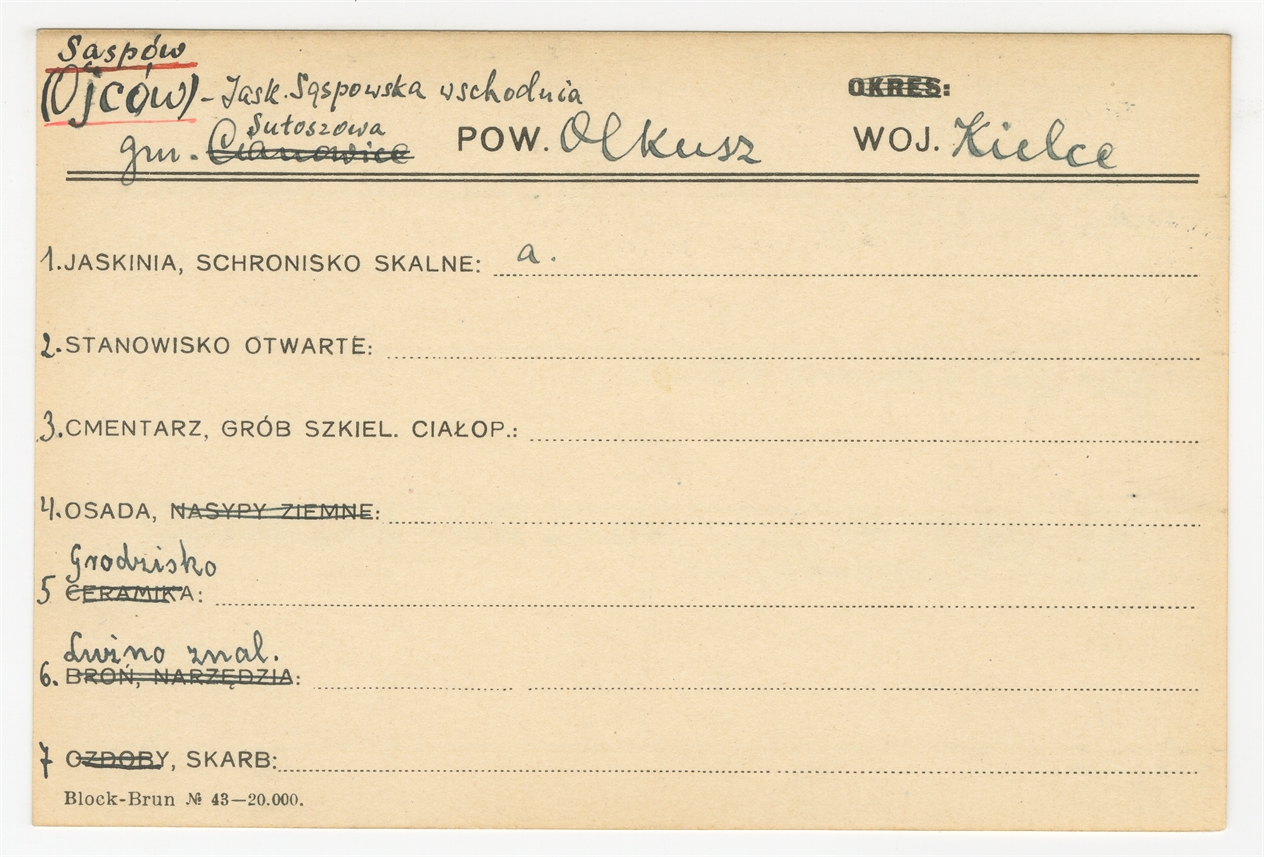 Sąspów
(Ojców) - Jask. Sąspowska wschodnia OKRES:
Sułoszowa
gm. Cianowice POW. Olkusz WOJ. Kielce
1. JASKINIA, SCHRONISKO SKALNE: a.
2. STANOWISKO OTWARTE:
3. CMENTARZ, GRÓB SZKIEL. CIAŁOP.:
4. OSADA, NASYPY ZIEMNE:
Grodzisko
5 CERAMIKA:
Luźno znal.
6. BROŃ, NARZĘDZIA:
7 OZDOBY, SKARB:
Block-Brun № 43—20.000.